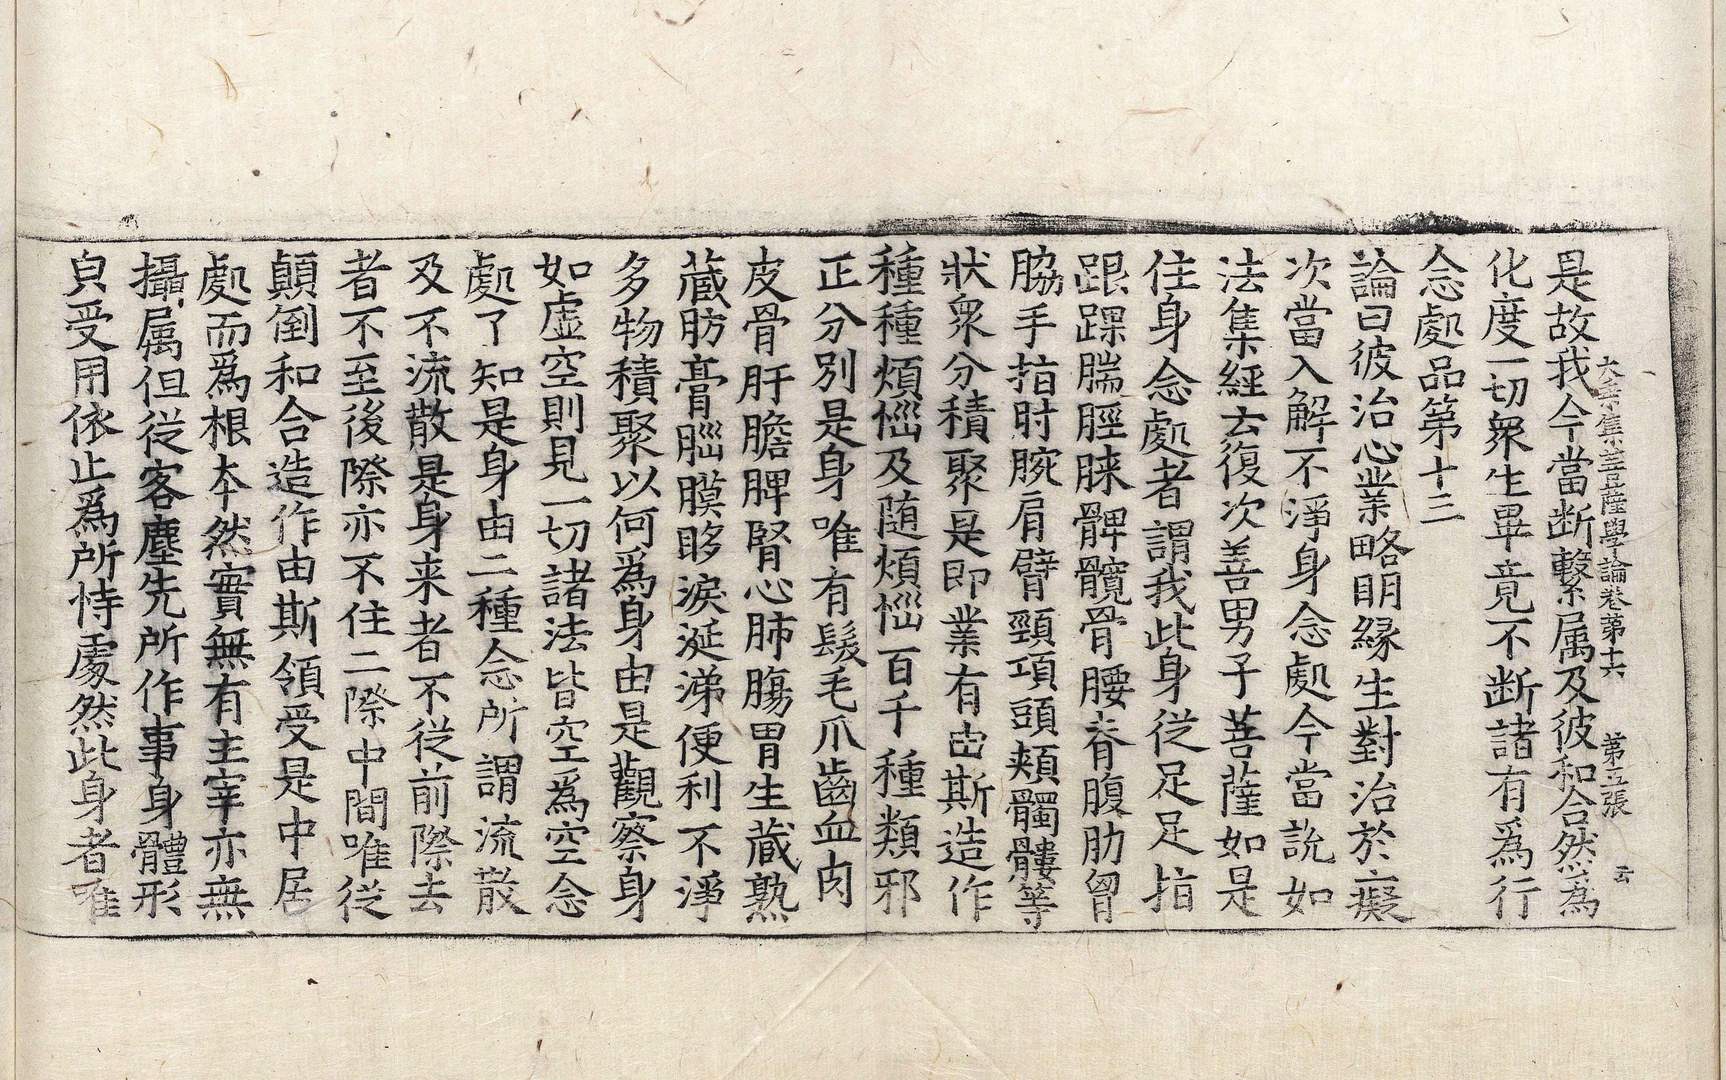 大乘集菩薩學論卷第十六　第五張　云
是故我今當断繫属及彼和合然為
化度一切衆生畢竟不断諸有為行
念處品第十三
論曰彼治心業略明緣生對治於癡
次當入解不淨身念處今當說如
法集經云復次善男子菩薩如是
住身念處者謂我此身從足足指
跟踝腨脛脨髀髖骨腰脊腹肋曾
脇手指肘腕肩臂頸項頭頬髑髏等
狀衆分積聚是即業有由斯造作
種種煩惱及随煩惱百千種類邪
正分別是身唯有髮毛爪齒血肉
皮骨肝膽脾腎心肺膓胃生蔵熟
蔵肪膏腦膜眵淚涎涕便利不淨
多物積聚以何為身由是觀察身
如虛空則見一切諸法皆空為空念
處了知是身由二種念所謂流散
及不流散是身来者不從前際去
者不至後際亦不住二際中間唯從
顛倒和合造作由斯領受是中居
處而為根本然實無有主宰亦無
攝属但從客塵先所作事身體形
㒵受用依止為所恃處然此身者唯